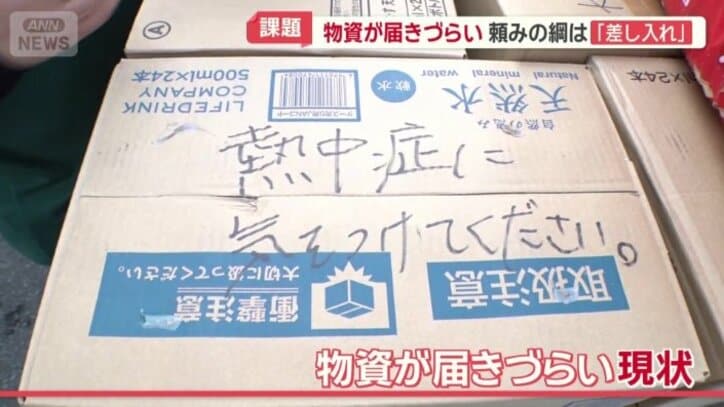 ANN
NEWS
課題
物資が届きづらい 頼みの綱は「差し入れ」
A
500ml×24本
LIFEDRINK
COMPANY
ケース用共用JANコード
軟水
Natural
mineral water
自然の恵み
天然水
熱中症に
気をつけてください。
大切に扱ってください。
衝撃注意
取扱注意
物資が届きづらい現状